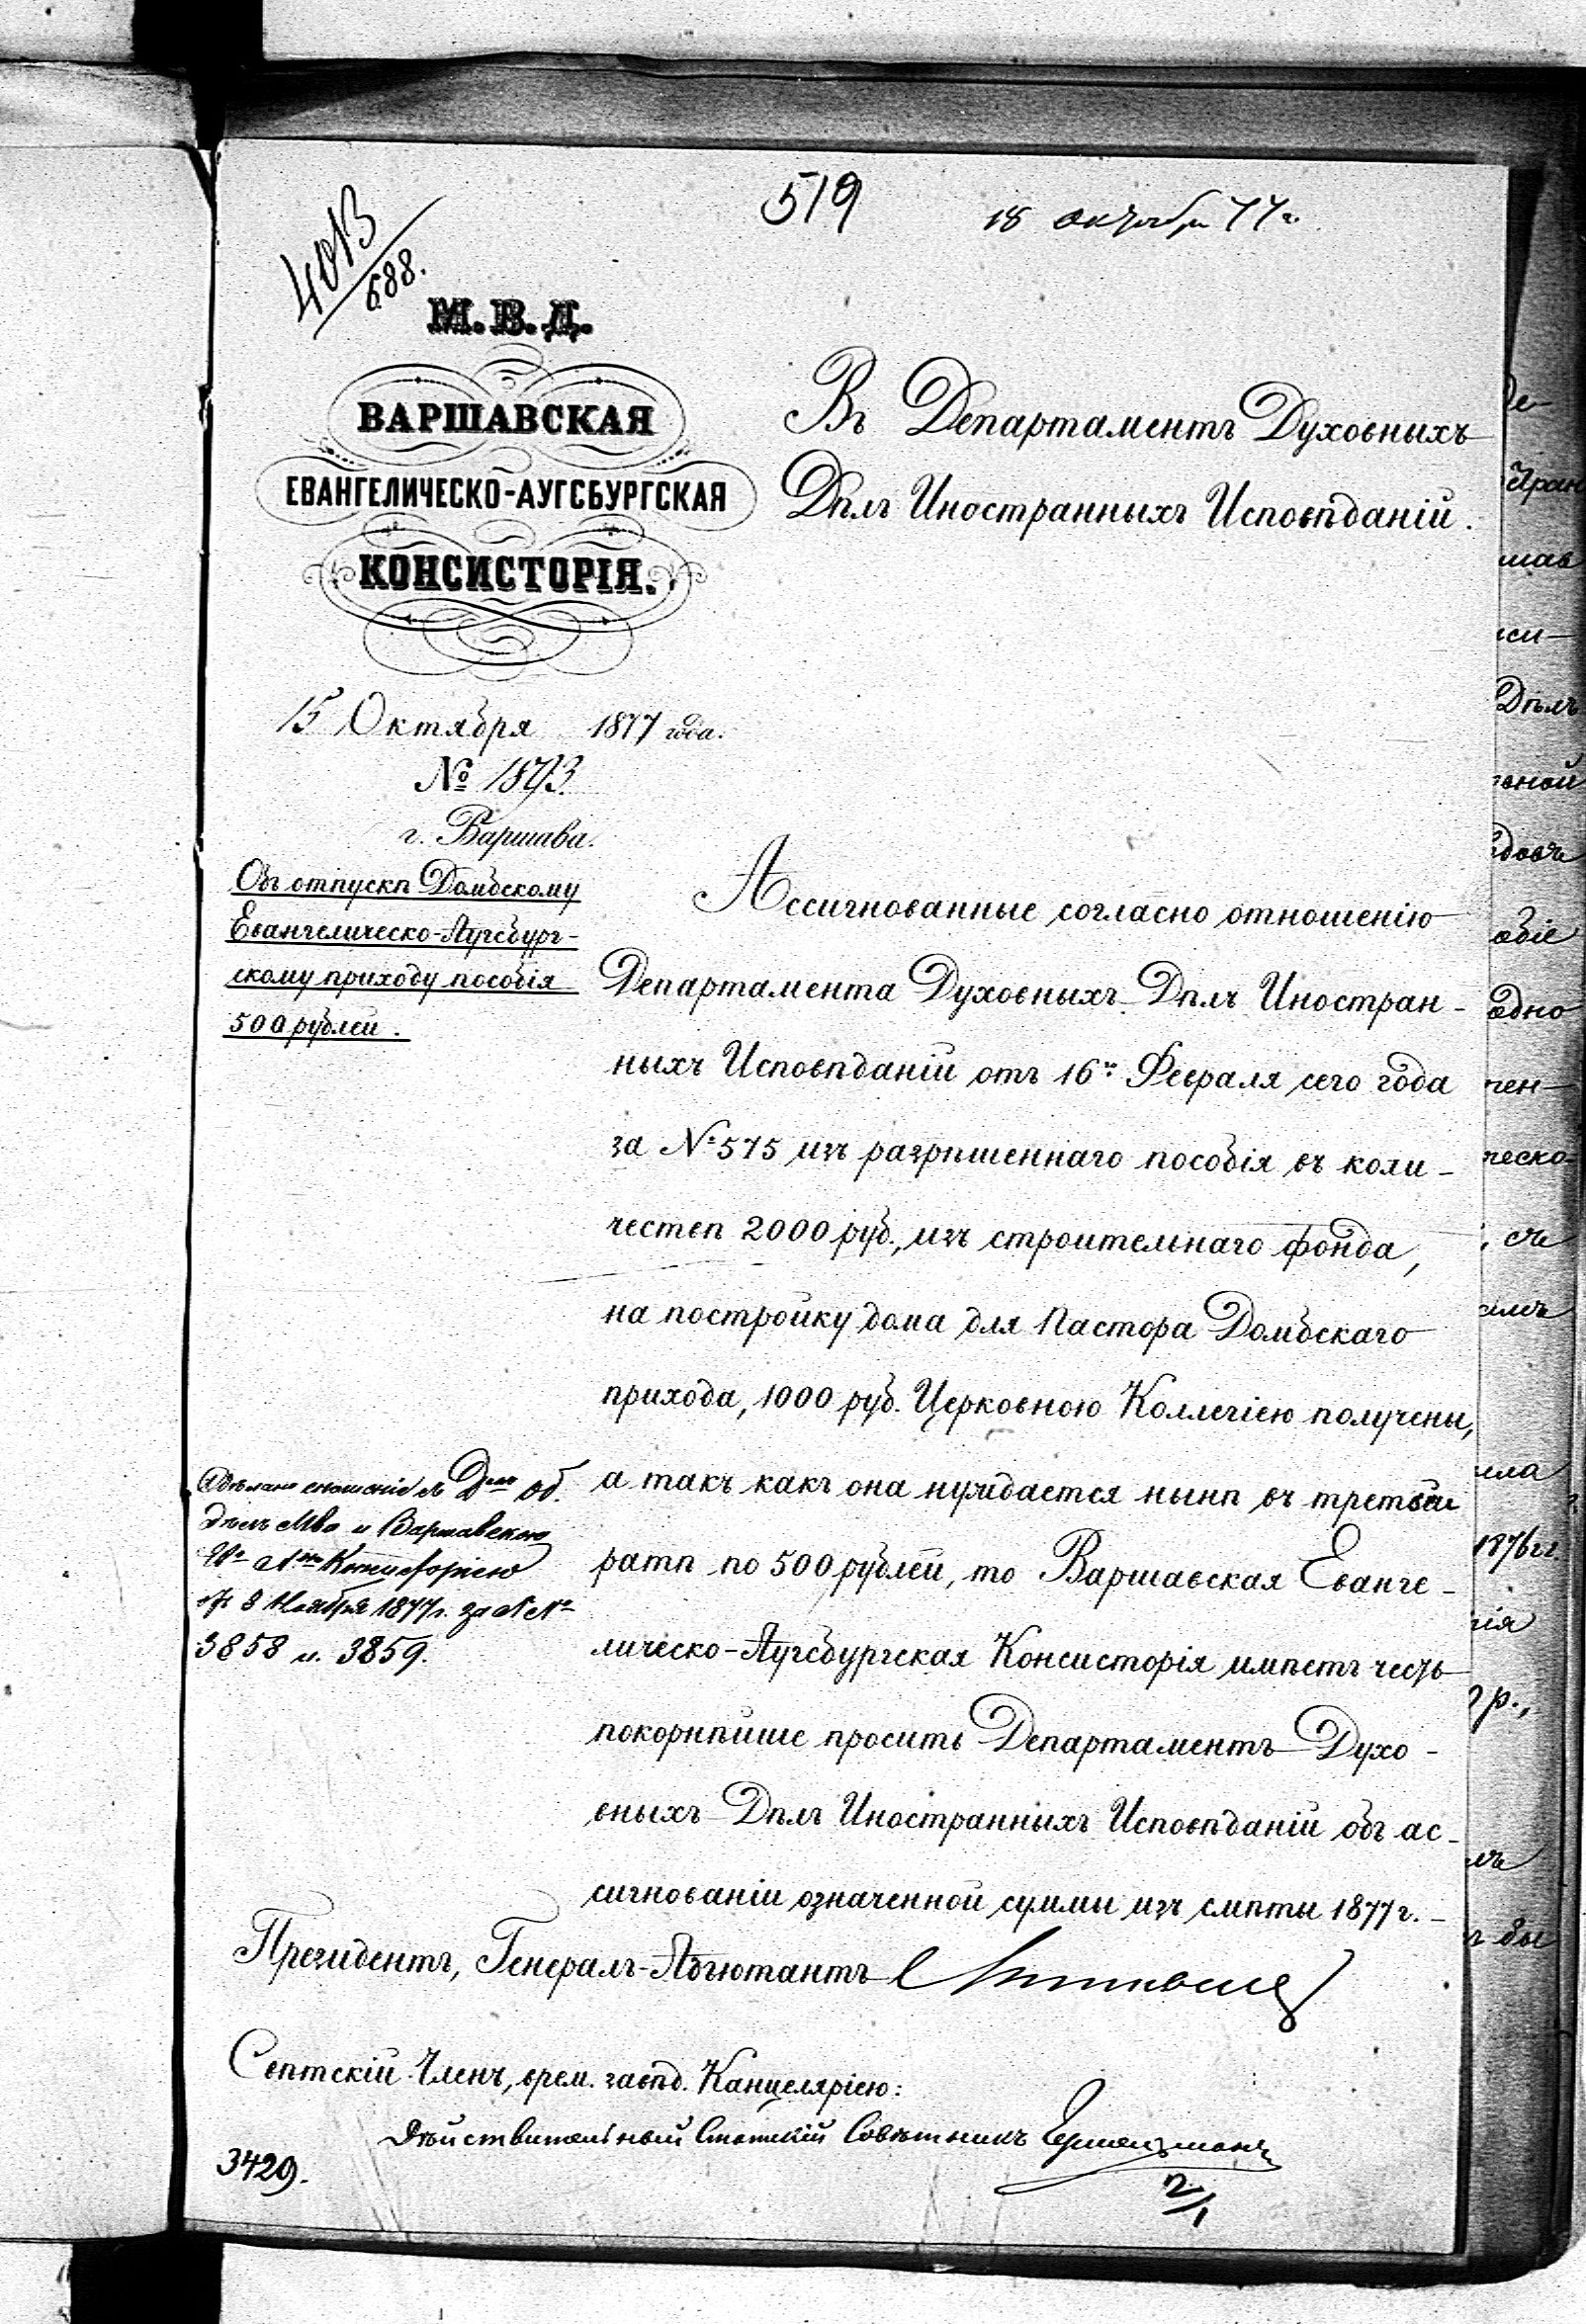 519
18 октября 77 г.
4013/688.
М. В. Д.
ВАРШАВСКАЯ
ЕВАНГЕЛИЧЕСКО-АУГСБУРГСКАЯ
КОНСИСТОРІЯ.
Въ Департаментъ Духовныхъ
Дѣлъ Иностранныхъ Исповѣданій.
15 Октября 1877 года.
№ 1893.
г. Варшава.
Объ отпускѣ Домбскому
Евангелическо-Аугсбург-
скому приходу пособія
500 рублей.
Ассигнованные согласно отношенію
Департамента Духовныхъ Дѣлъ Иностран-
ныхъ Исповѣданій отъ 16го Февраля сего года
за № 575 изъ разрѣшеннаго пособія въ коли-
чествѣ 2000 руб., изъ строительнаго фонда,
на постройку дома для Пастора Домбскаго
прихода, 1000 руб. Церковною Коллегіею получены,
а такъ какъ она нуждается нынѣ въ третьей
ратѣ по 500 рублей, то Варшавская Еванге-
лическо-Аугсбургская Консисторія имѣетъ честь
покорнѣйше просить Департаментъ Духо-
вныхъ Дѣлъ Иностранныхъ Исповѣданій объ ас-
сигнованіи означенной суммы изъ смѣты 1877 г.
Сдѣлано сношеніе съ Дом об.
дѣлъ Мва и Варшавскою
Консисторіею
отъ 8 Ноября 1877 г. за №№
3858 и 3859.
Президентъ, Генералъ-Адъютантъ
Свѣтскій Членъ, врем. завѣд. Канцеляріею:
Дѣйствительный Статскій Совѣтникъ
3429.